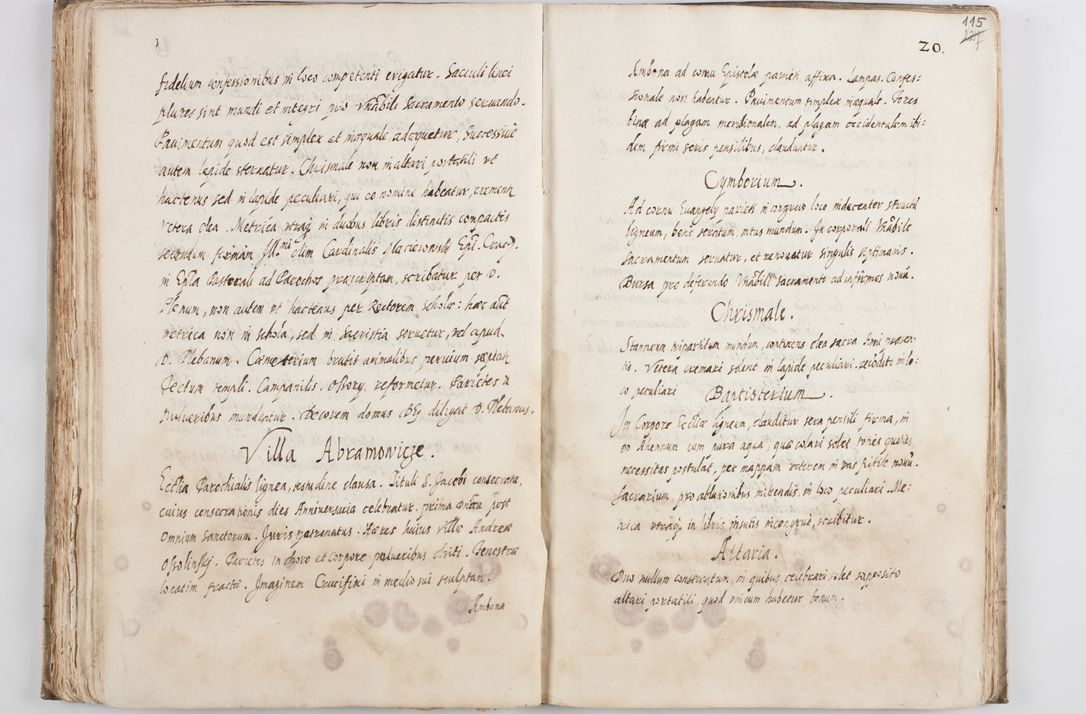 fidelium confessionibus in loco competenti erigatur. Sacculi linei
plures sint mundi et integri pro Vnãbili Sacramento seruando.
Pauimentum quod est simplex et inæquale adæquetur, successiue
autem lapide sternatur. Chrismale non in altari portatili vt
hactenus sed in lapide peculiari, qui eo nomine habeatur, crement
vetera olea. Metrica utraq in duobus libris distinctis compactis
secundum formam Illmi olim Cardinalis Macieiowski Epi Crac.
in Epla Pastorali ad Parochos præscriptam, scribatur per D.
Plebanum, non autem vt hactenus per Rectorem scholæ: hæc aut
metrica non in schola, sed in Sacristia seruetur, vel apud
D. Plebanum. Cæmeterium brutis animalibus peruium sæpiat
Tectum templi. Campanilis. reformetur. Parietes a
pulueribus mundentur. Decorem domus Dei diligat D. Plebanus.
Villa Abramowicze.
Ecclia Parochialis lignea, testudine clausa. Tituli S. Jacobi consecrata,
cuius consecrationis dies Anniuersaria celebratur. prima Dnica post
Omnium Sanctorum. Juris patronatus. Hæres huius villæ Andreas
Ossolinskj. Parietes in choro et corpore pulueribus obsiti. Fenestræ
locatim fractæ. Imaginem Crucifixi in medio sui sculptam.
Ambona
115
20.
Ambona ad cornu Epistolæ parieti affixa. Lampas. Confes:
sionale non habetur. Pauimentum simplex inæquale. Fores
binæ ad plagam meridionalem, ad plagam occidentalem ibi:
dem firmi seris pensilibus, clauduntur.
Cymborium.
Ad cornu Euangelij parieti in congruo loco indecenter structu
ligneum, bene seratum, intus mundum. In corporali Vnãbile
Sacramentum seruatur, et renouatur singulis septimanis.
Bursa pro deferendo Vnãbili Sacramento ad infirmos noua.
Chrismale.
Stanneum tripartitum mundum, continens olea sacra Anni præsen
tis. Vetera cremari solent in lapide peculiari. recondit in lo:
co peculiari
Baptisterium.
In Corpore Ecclæ ligneum, clauditur sera pensili firma, in
eo Ahæneum cum pura aqua, quæ colari solet toties quoties
necessitas postulat, per mappam veterem in vas fictile nouu.
Sacrarium, pro ablutionibus mittendis, in loco peculiari. Me:
trica utraq in libris insutis incongrue, scribitur.
Altaria.
Duo nullum consecratum, in quibus celebrari solet supposito
altari portatili, quod unicum habetur bonum.